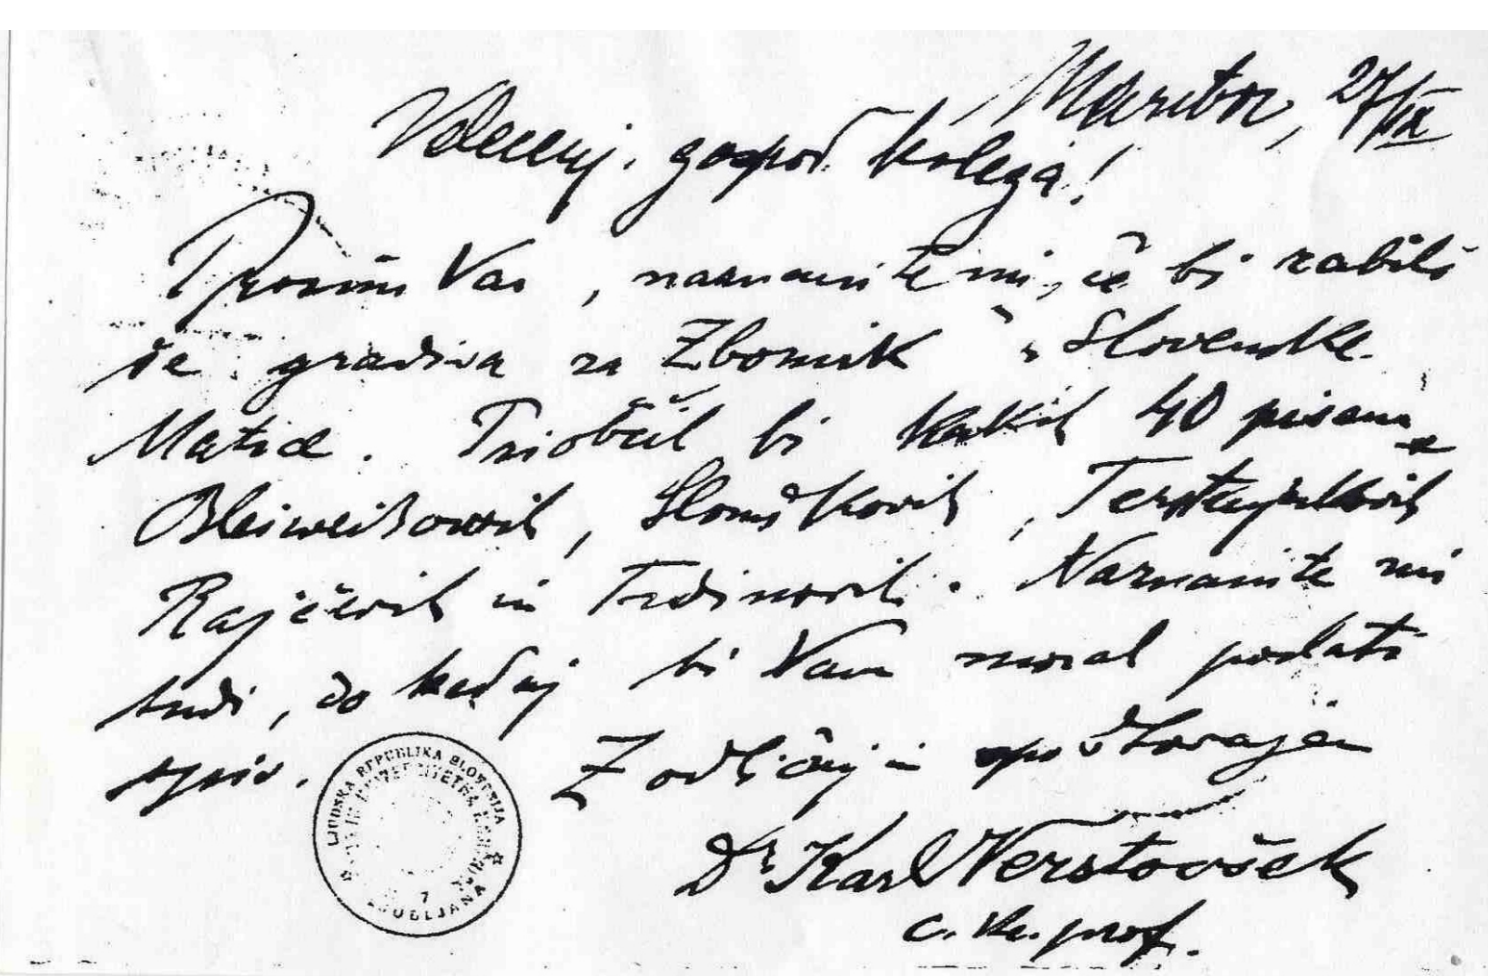 Maribor, 27/IX
Velecenj. gospod kolega!
Prosim Vas, naznanite mi, če bi rabili
še gradiva za Zbornik „Slovenske
Matice. Priobčil bi kakih 40 pisem
Bleiweisovih, Slomškovih, Terstenjakovih
Rajčevih in Trdinovih. Naznanite mi
tudi, do kedaj bi Vam moral poslati
spis. Z odličnim spoštovanjem
Dr Karl Verstovšek
c. kr. prof.
LJUDSKA REPUBLIKA SLOVENIJA
LJUBLJANA
7